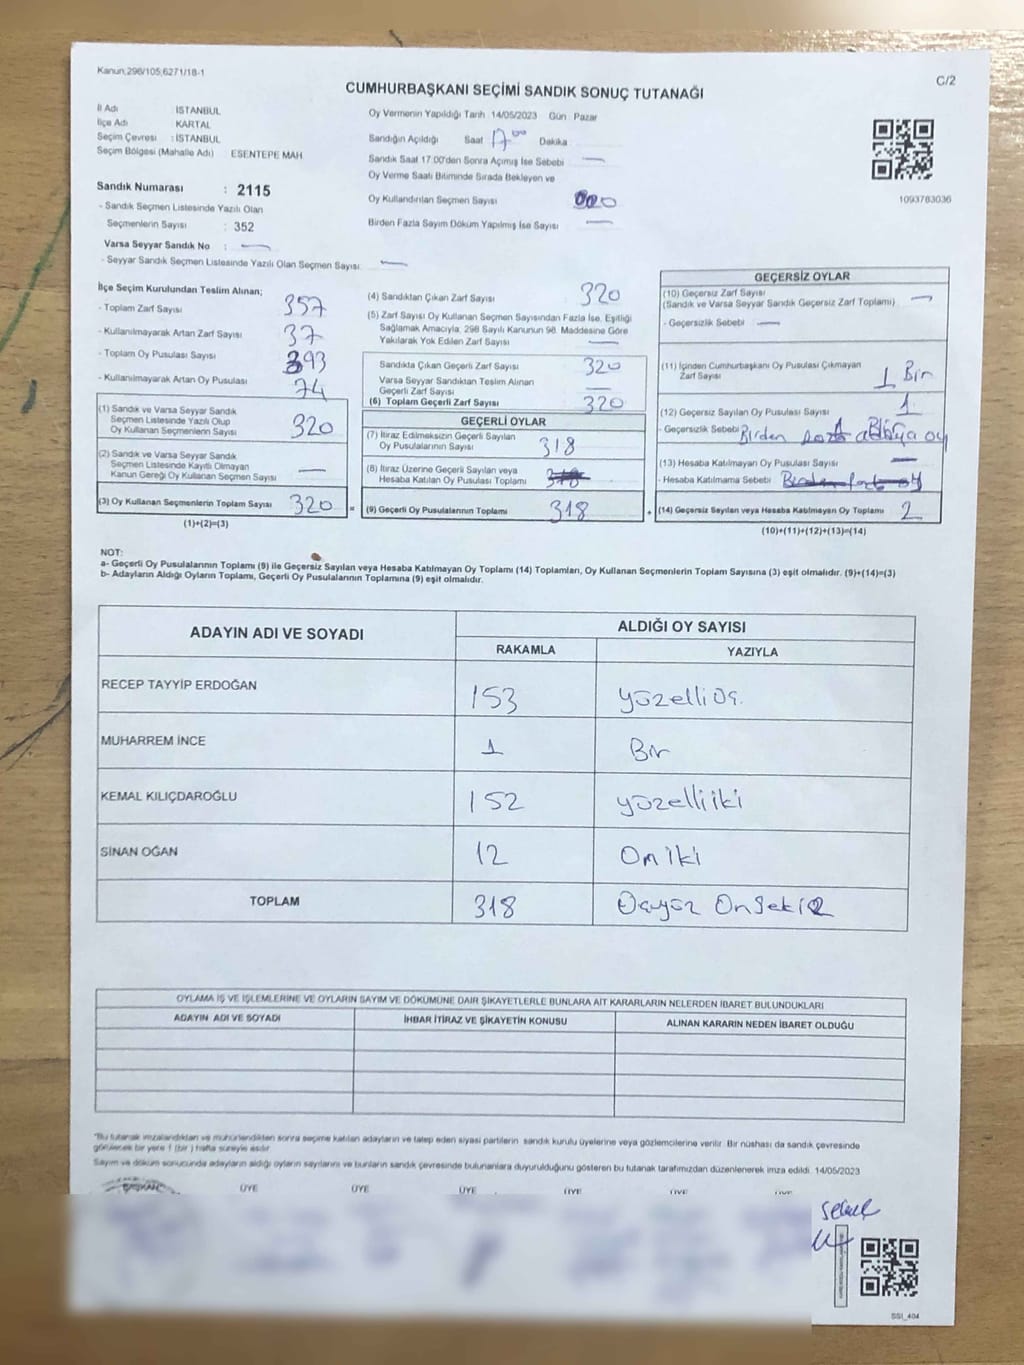 Kanun,298/105,6271/18-1
C/2
CUMHURBAŞKANI SEÇİMİ SANDIK SONUÇ TUTANAĞI
İl Adı : İSTANBUL
İlçe Adı : KARTAL
Seçim Çevresi : İSTANBUL
Seçim Bölgesi (Mahalle Adı) ESENTEPE MAH
Oy Vermenin Yapıldığı Tarih 14/05/2023 Gün : Pazar
Sandığın Açıldığı Saat 17 00 Dakika
Sandık Saat 17.00'den Sonra Açımış İse Sebebi —
Oy Verme Saati Bitiminde Sırada Bekleyen ve
Oy Kullandırılan Seçmen Sayısı
Birden Fazla Sayım Döküm Yapılmış İse Sayısı —
1093763036
Sandık Numarası : 2115
- Sandık Seçmen Listesinde Yazılı Olan
Seçmenlerin Sayısı : 352
Varsa Seyyar Sandık No : —
- Seyyar Sandık Seçmen Listesinde Yazılı Olan Seçmen Sayısı: —
İlçe Seçim Kurulundan Teslim Alınan;
- Toplam Zarf Sayısı 357
- Kullanılmayarak Artan Zarf Sayısı 37
- Toplam Oy Pusulası Sayısı 393
- Kullanılmayarak Artan Oy Pusulası 74
(1) Sandık ve Varsa Seyyar Sandık
Seçmen Listesinde Yazılı Olup
Oy Kullanan Seçmenlerin Sayısı 320
(2) Sandık ve Varsa Seyyar Sandık
Seçmen Listesinde Kayıtlı Olmayan
Kanun Gereği Oy Kullanan Seçmen Sayısı —
(3) Oy Kullanan Seçmenlerin Toplam Sayısı 320 =
(1)+(2)=(3)
(4) Sandıktan Çıkan Zarf Sayısı 320
(5) Zarf Sayısı Oy Kullanan Seçmen Sayısından Fazla İse, Eşitliği
Sağlamak Amacıyla, 298 Sayılı Kanunun 98. Maddesine Göre
Yakılarak Yok Edilen Zarf Sayısı —
Sandıkta Çıkan Geçerli Zarf Sayısı 320
Varsa Seyyar Sandıktan Teslim Alınan
Geçerli Zarf Sayısı —
(6) Toplam Geçerli Zarf Sayısı 320
GEÇERLİ OYLAR
(7) İtiraz Edilmeksizin Geçerli Sayılan
Oy Pusulalarının Sayısı 318
(8) İtiraz Üzerine Geçerli Sayılan veya
Hesaba Katılan Oy Pusulası Toplamı
(9) Geçerli Oy Pusulalarının Toplamı 318 +
GEÇERSİZ OYLAR
(10) Geçersiz Zarf Sayısı
(Sandık ve Varsa Seyyar Sandık Geçersiz Zarf Toplamı) —
- Geçersizlik Sebebi —
(11) İçinden Cumhurbaşkanı Oy Pusulası Çıkmayan
Zarf Sayısı 1 Bir
(12) Geçersiz Sayılan Oy Pusulası Sayısı 1
- Geçersizlik Sebebi Birden oy
(13) Hesaba Katılmayan Oy Pusulası Sayısı —
- Hesaba Katılmama Sebebi
(14) Geçersiz Sayılan veya Hesaba Katılmayan Oy Toplamı 2
(10)+(11)+(12)+(13)=(14)
NOT:
a- Geçerli Oy Pusulalarının Toplamı (9) ile Geçersiz Sayılan veya Hesaba Katılmayan Oy Toplamı (14) Toplamları, Oy Kullanan Seçmenlerin Toplam Sayısına (3) eşit olmalıdır. (9)+(14)=(3)
b- Adayların Aldığı Oyların Toplamı, Geçerli Oy Pusulalarının Toplamına (9) eşit olmalıdır.
ADAYIN ADI VE SOYADI
ALDIĞI OY SAYISI
RAKAMLA YAZIYLA
RECEP TAYYİP ERDOĞAN 153 yüzelliüç.
MUHARREM İNCE 1 Bir
KEMAL KILIÇDAROĞLU 152 yüzelliiki
SİNAN OĞAN 12 Oniki
TOPLAM 318 Üçyüz Onsekiz
OYLAMA İŞ VE İŞLEMLERİNE VE OYLARIN SAYIM VE DÖKÜMÜNE DAİR ŞİKAYETLERLE BUNLARA AİT KARARLARIN NELERDEN İBARET BULUNDUKLARI
ADAYIN ADI VE SOYADI İHBAR İTİRAZ VE ŞİKAYETİN KONUSU ALINAN KARARIN NEDEN İBARET OLDUĞU
"Bu tutanak imzalandıktan ve mühürlendikten sonra seçime katılan adayların ve talep eden siyasi partilerin sandık kurulu üyelerine veya gözlemcilerine verilir. Bir nüshası da sandık çevresinde
görülecek bir yere 1 (bir) hafta süreyle asılır.
Sayım ve döküm sonucunda adayların aldığı oyların sayılarını ve bunların sandık çevresinde bulunanlara duyurulduğunu gösteren bu tutanak tarafımızdan düzenlenerek imza edildi. 14/05/2023
BAŞKAN ÜYE ÜYE ÜYE ÜYE ÜYE ÜYE
SSI_404